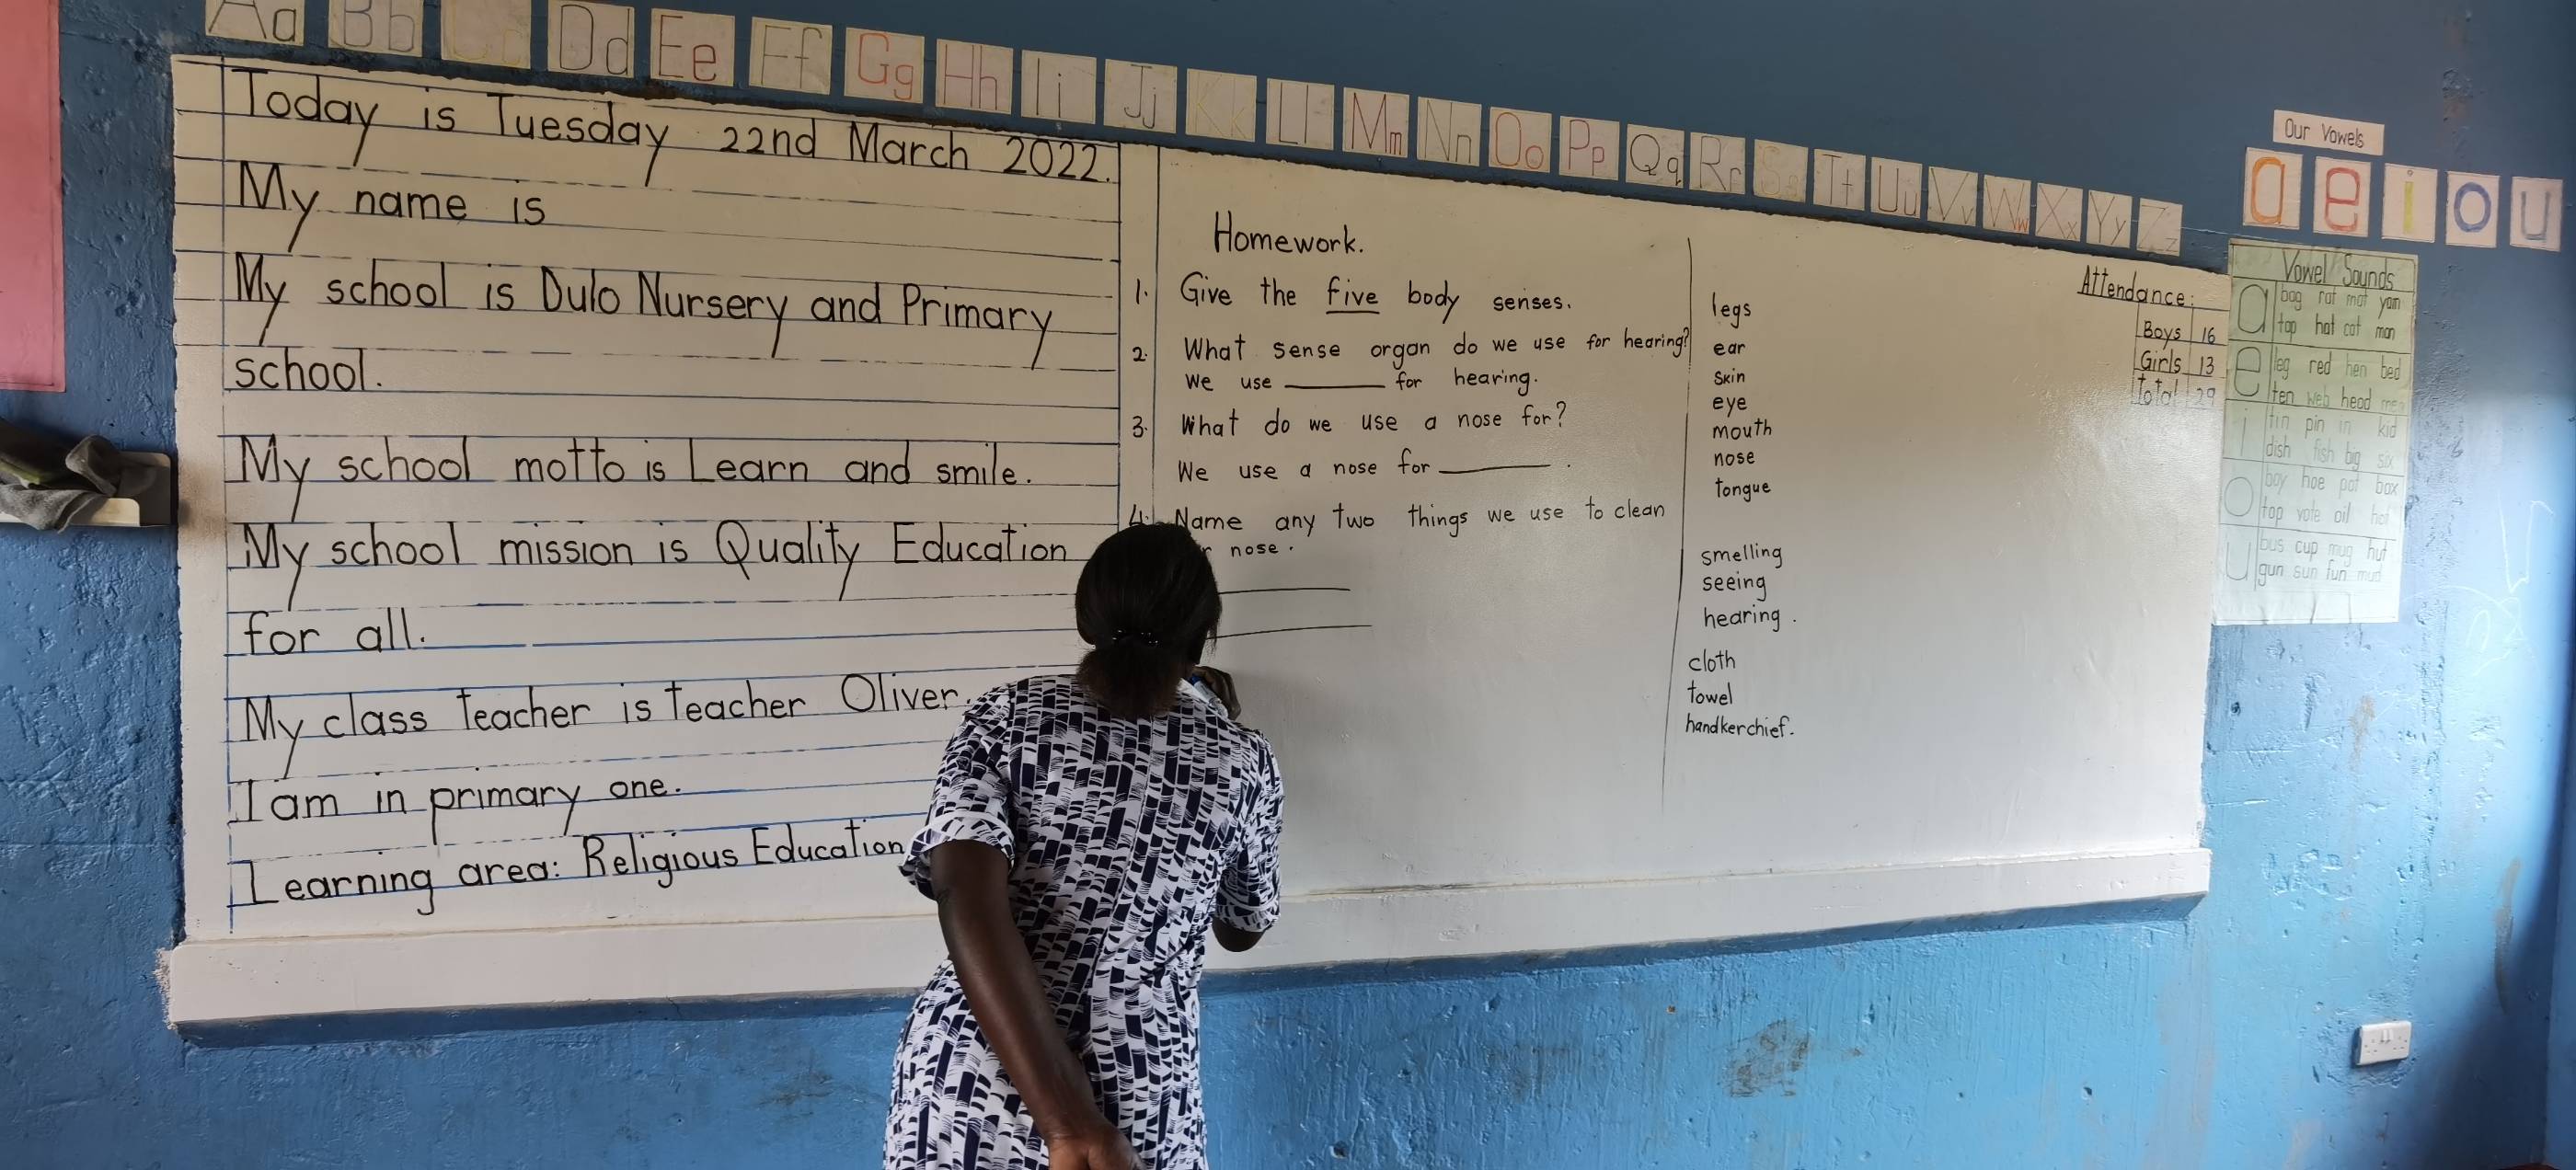 Aa Bb Cc Dd Ee Ff Gg Hh Ii Jj Kk Ll Mm Nn Oo Pp Qq Rr Ss Tt Uu Vv Ww Xx Yy Zz
Today is Tuesday 22nd March 2022.
My name is
My school is Dulo Nursery and Primary
school.
My school motto is Learn and smile.
My school mission is Quality Education
for all.
My class teacher is teacher Oliver.
I am in primary one.
Learning area: Religious Education
Homework.
1. Give the five body senses.
2. What sense organ do we use for hearing?
We use ______ for hearing.
3. What do we use a nose for?
We use a nose for ______.
4. Name any two things we use to clean
nose.
legs
ear
skin
eye
mouth
nose
tongue
smelling
seeing
hearing.
cloth
towel
handkerchief.
Attendance:
Boys 16
Girls 13
Total 29
Our Vowels
a e i o u
Vowel Sounds
a bag rat mat yam
tap hat cat man
e leg red hen bed
ten web head
i tin pin in kid
dish fish big six
o boy hoe pot box
top vote oil hot
u bus cup mug hut
gun sun fun mud